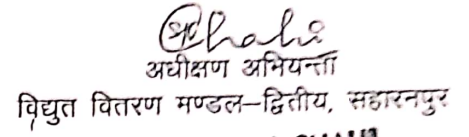 अधीक्षण अभियन्ता
विद्युत वितरण मण्डल-द्वितीय, सहारनपुर